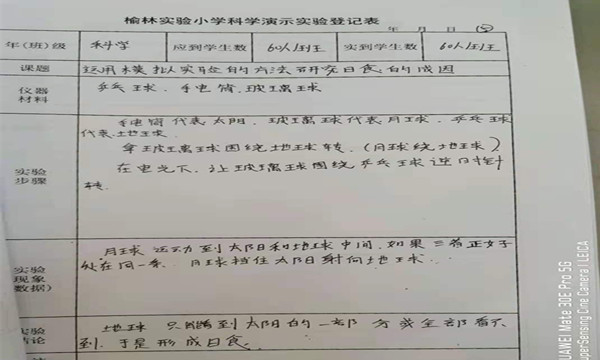 榆林实验小学科学演示实验登记表
年 月 日
年(班)级 科学 应到学生数 60人/班 实到学生数 60人/班
课题 运用模拟实验的方法研究日食的成因
仪器材料 乒乓球、手电筒、玻璃球
手电筒代表太阳, 玻璃球代表月球, 乒乓球
代表地球.
实验步骤
拿玻璃球围绕地球转. (月球绕地球)
在电光下, 让玻璃球围绕乒乓球逆时针
转.
月球运动到太阳和地球中间, 如果三者正好
实验现象 数据)
处在同一条 月球挡住太阳射向地球.
地球 只能看到太阳的一部分或全部看不
到. 于是形成日食.
验 结论
HUAWEI Mate 30E Pro 5G
SuperSensing Cine Camera | LEICA